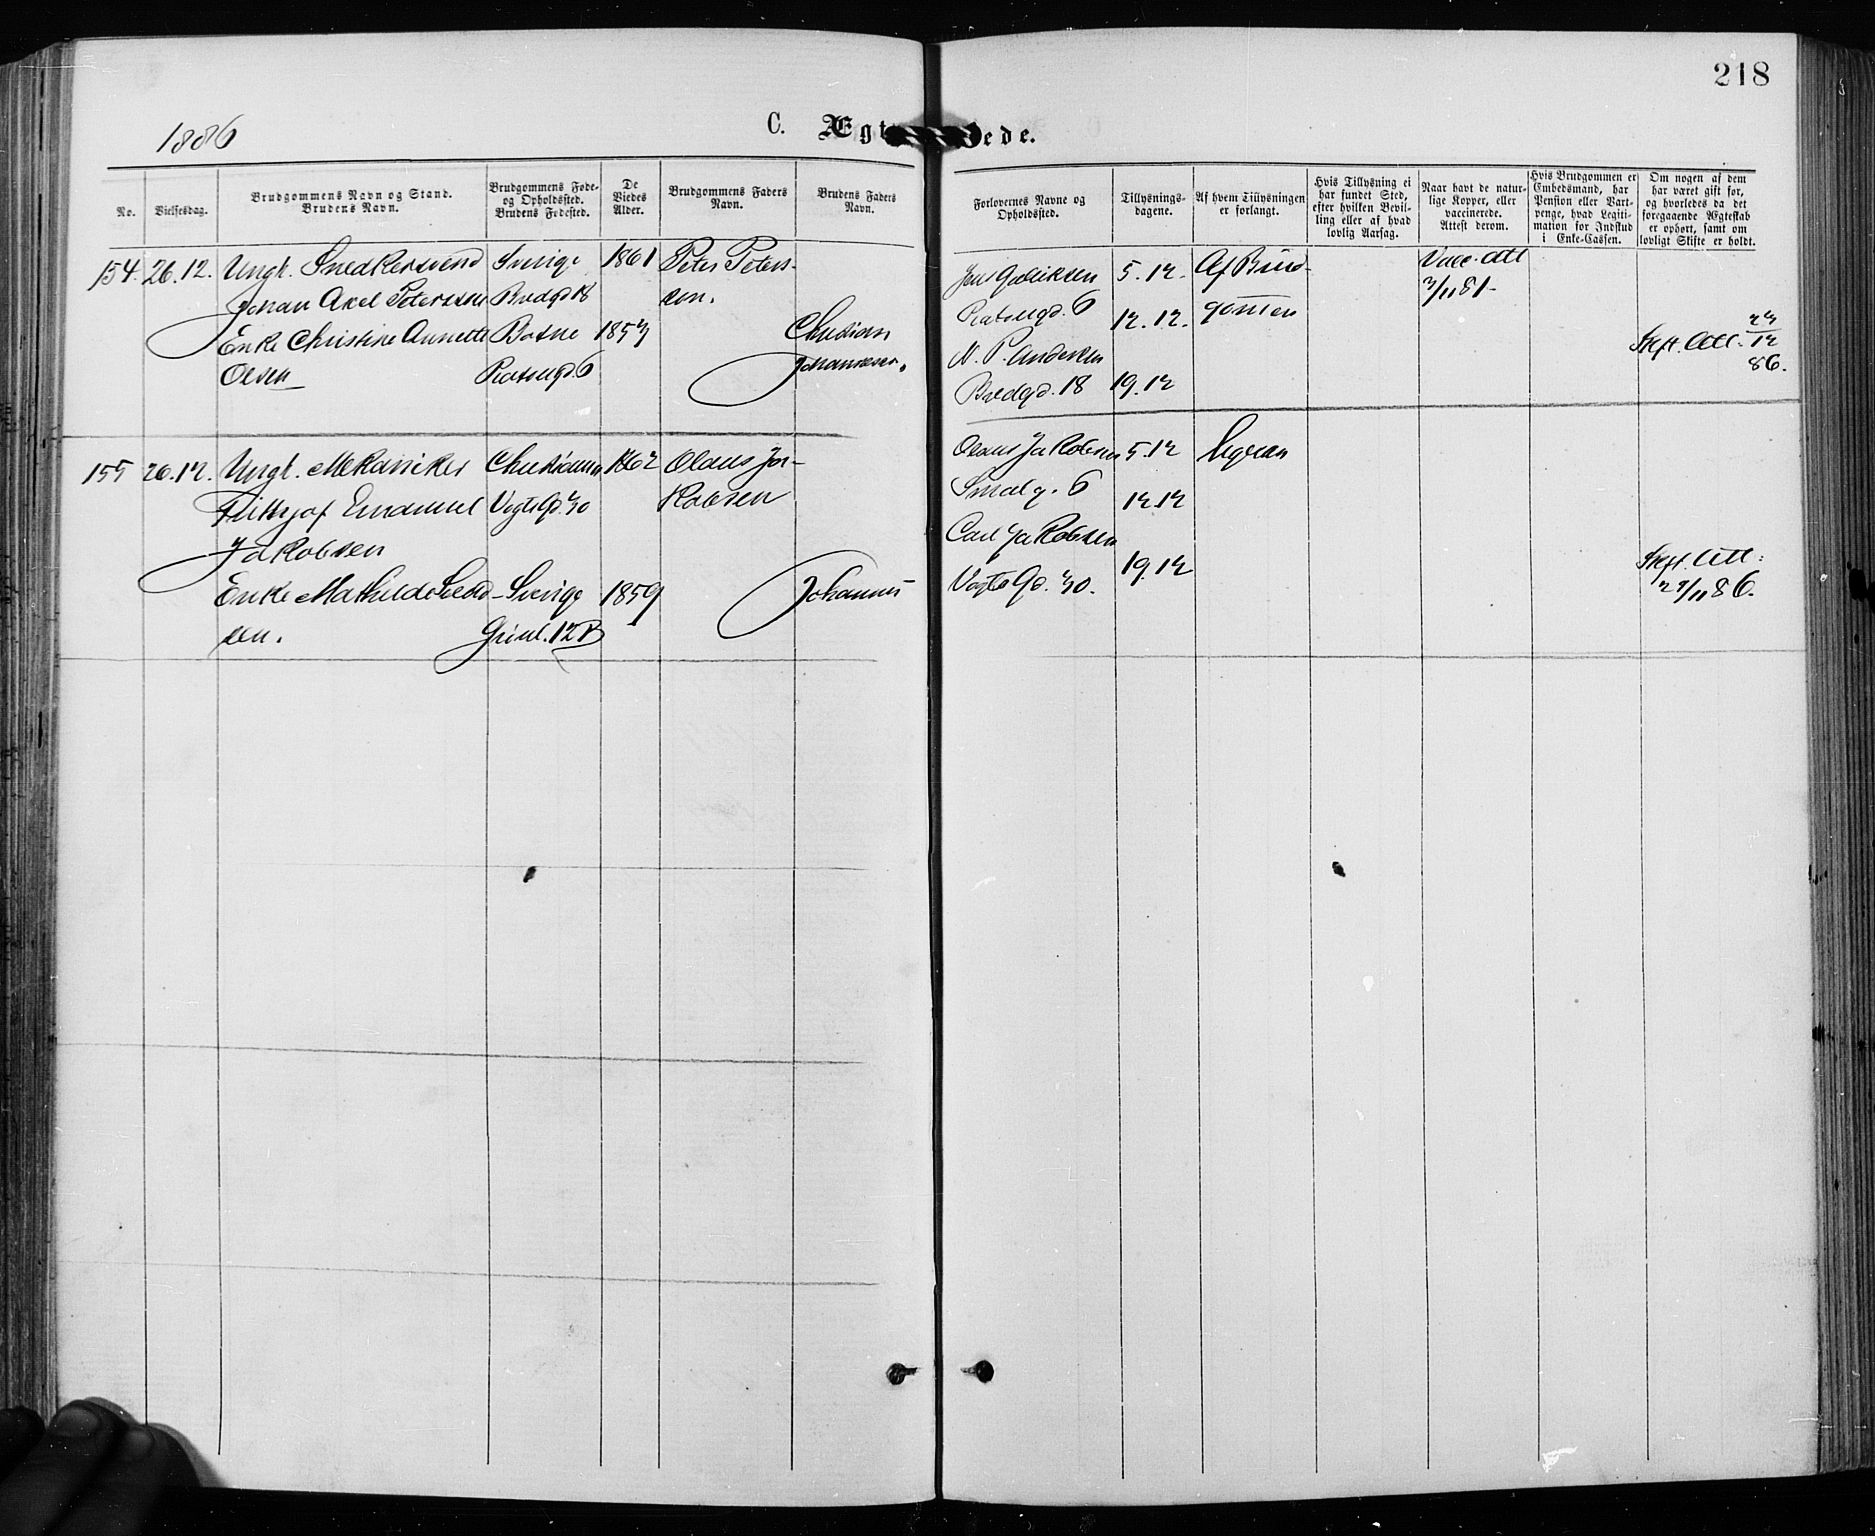 218
1886
C. Ægt ede.
No.
Vielsesdag.
Brudgommens Navn og Stand.
Brudens Navn.
Brudgommens Føde-
og Opholdssted.
Brudens Fødested.
De
Viedes
Alder.
Brudgommens Faders
Navn.
Brudens Faders
Navn.
Forlovernes Navne og
Opholdssted.
Tillysnings-
dagene.
Af hvem Tillysningen
er forlangt.
Hvis Tillysning ei
har fundet Sted,
efter hvilken Bevil-
ling eller af hvad
lovlig Aarsag.
Naar havt de natur-
lige Kopper, eller
vaccinerede.
Attest derom.
Hvis Brudgommen er
Embedsmand, har
Pension eller Vart-
penge, hvad Legiti-
mation for Indskud
i Enke-Cassen.
Om nogen af dem
har været gift før,
og hvorledes da det
foregaaende Ægteskab
er ophørt, samt om
lovligt Skifte er holdt.
154. 26.12. Ungk. Snedkersvend Sverige 1861 Peter Peters-
Johan Axel Peterssen Bredgd 18 sen.
Enke Christine Annette 1857 Christian
Olsen 6 Johannesen.
Jens 5.12. Af Brud- Vacc. Att
6 12.12. gommen 7/11 81.
N. P. Andersen Skft. Att. 23/12
Bredgd. 18 19.12 86.
155 26.12. Ungk. Mekaniker Christiania 1862 Olaus Ja-
Frithjof Emanuel Vogts Gd. 30 kobsen
Jakobsen
Enke Mathilde Sverige 1859 Johannes
sen. 12B
Olaus Jakobsen 5.12
Smalg. 6 12.12
Carl Jakobsen 19.12 Skft. Att:
Vogts Gd. 30. /11 86.